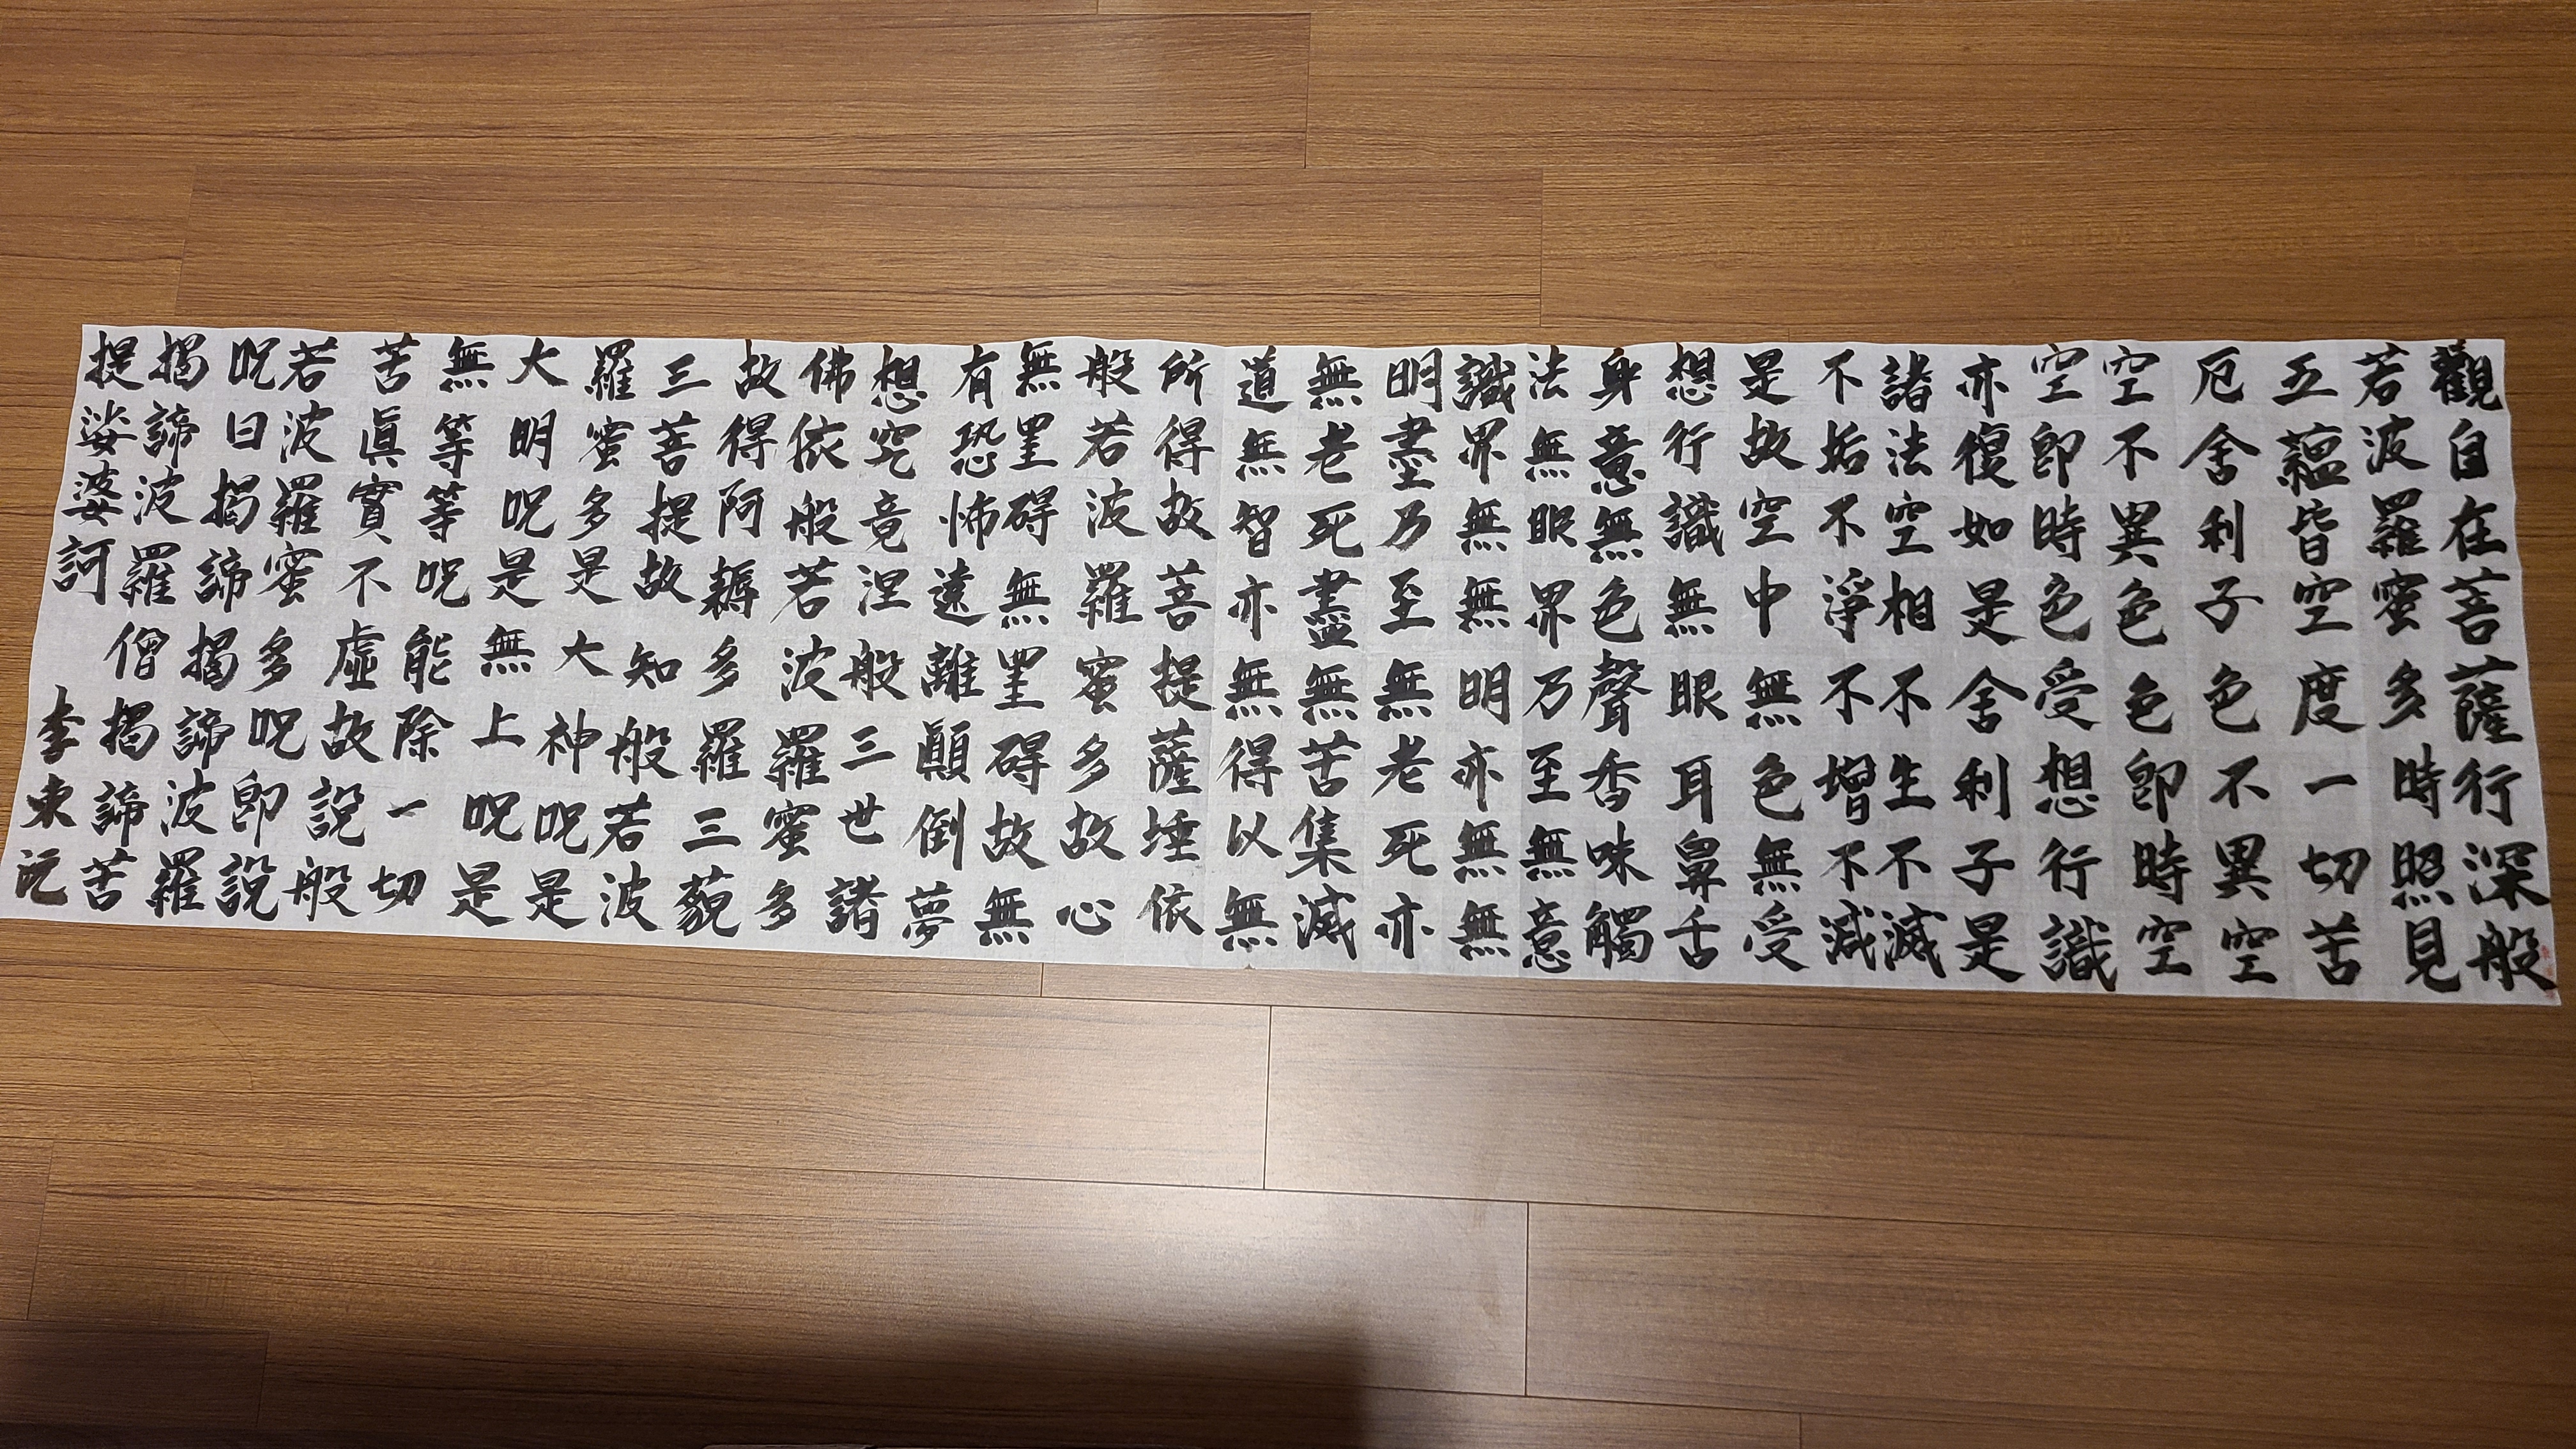 觀自在菩薩行深般
若波羅蜜多時照見
五蘊皆空度一切苦
厄舍利子色不異空
空不異色色即時空
空即時色受想行識
亦復如是舍利子是
諸法空相不生不滅
不垢不淨不增不減
是故空中無色無受
想行識無眼耳鼻舌
身意無色聲香味觸
法無眼界乃至無意
識界無無明亦無無
明盡乃至無老死亦
無老死盡無苦集滅
道無智亦無得以無
所得故菩提薩埵依
般若波羅蜜多故心
無罣碍無罣碍故無
有恐怖遠離顛倒夢
想究竟涅般三世諸
佛依般若波羅蜜多
故得阿耨多羅三藐
三菩提故知般若波
羅蜜多是大神呪是
大明呪是無上呪是
無等等呪能除一切
苦眞實不虛故說般
若波羅蜜多呪即說
呪曰揭諦揭諦波羅
揭諦波羅僧揭諦苦
提娑婆訶
李東沅